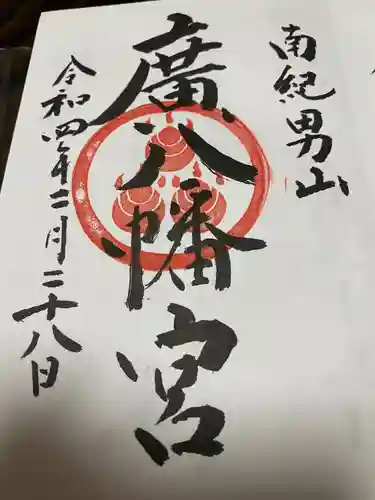 南紀男山
廣八幡宮
令和四年二月二十八日